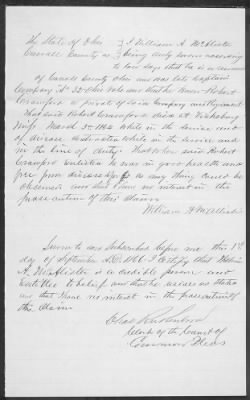 The State of Ohio } I William A. McAlister
Carroll County ss } being duly sworn according
to law says that he is a citizen
of Carroll County Ohio and was late Captain
Company 32 Ohio Vols and that he knew Robert
Crawford a private of said Company and Regiment
That said Robert Crawford died at Vicksburg
Miss March 3rd 1864 while in the service and
of disease contracted while in the service and
in the line of duty. That when said Robert
Crawford enlisted he was in good health and
free from disease so far as any thing could be
observed and has no interest in the
prosecution of this claim
William A McAllister
Sworn to and Subscribed before me this 1st
day of September A.D. 1866 I certify that William
A. McAllister is a credible person and
entitled to belief and that he resides as stated
and that I have no interest in the prosecution of
the claim
Clerk of the Court of
Common Pleas